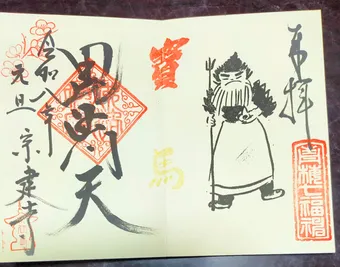 奉拝
青梅七福神
賀
馬
毘沙門天
令和八年
元旦
宗建寺